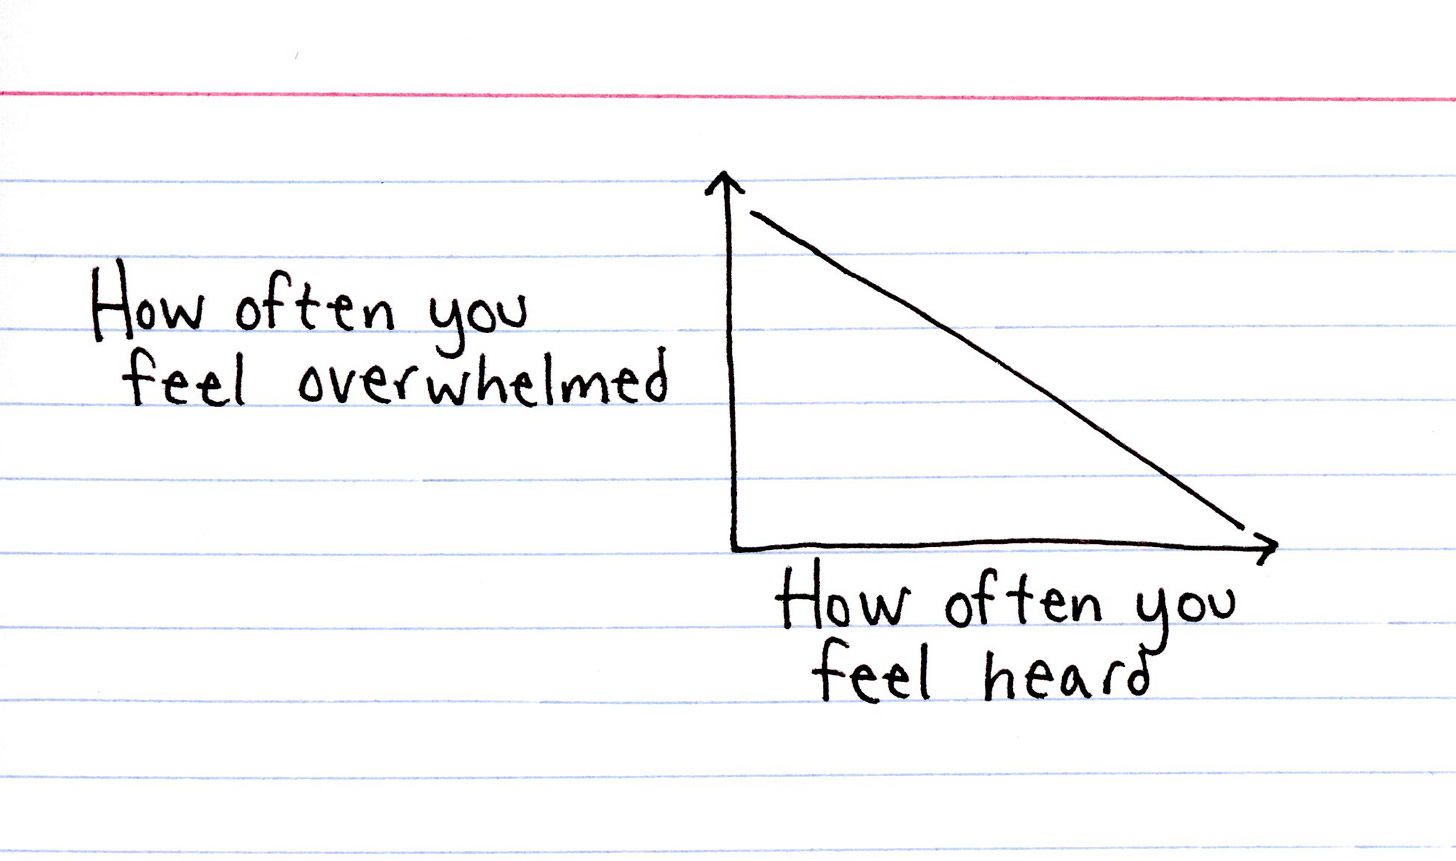 How often you
feel overwhelmed
How often you
feel heard